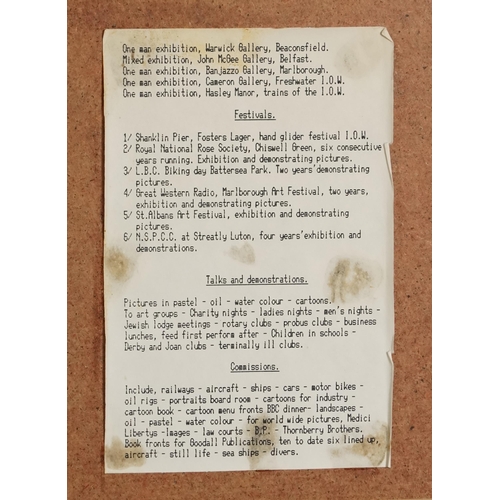 One man exhibition, Warwick Gallery, Beaconsfield.
Mixed exhibition, John McGee Gallery, Belfast.
One man exhibition, Banjazzo Gallery, Marlborough.
One man exhibition, Cameron Gallery, Freshwater I.O.W.
One man exhibition, Hasley Manor, trains of the I.O.W.
Festivals.
1/ Shanklin Pier, Fosters Lager, hand glider festival I.O.W.
2/ Royal National Rose Society, Chiswell Green, six consecutive
years running. Exhibition and demonstrating pictures.
3/ L.B.C. Biking day Battersea Park. Two years'demonstrating
pictures.
4/ Great Western Radio, Marlborough Art Festival, two years,
exhibition and demonstrating pictures.
5/ St.Albans Art Festival, exhibition and demonstrating
pictures.
6/ N.S.P.C.C. at Streatly Luton, four years'exhibition and
demonstrations.
Talks and demonstrations.
Pictures in pastel - oil - water colour - cartoons.
To art groups - Charity nights - ladies nights - men's nights -
Jewish lodge meetings - rotary clubs - probus clubs - business
lunches, feed first perform after - Children in schools -
Derby and Joan clubs - terminally ill clubs.
Commissions.
Include, railways - aircraft - ships - cars - motor bikes -
oil rigs - portraits board room - cartoons for industry -
cartoon book - cartoon menu fronts BBC dinner- landscapes -
oil - pastel - water colour - for world wide pictures, Medici
Libertys -Images - law courts - B.P. - Thornberry Brothers.
Book fronts for Goodall Publications, ten to date six lined up,
aircraft - still life - sea ships - divers.